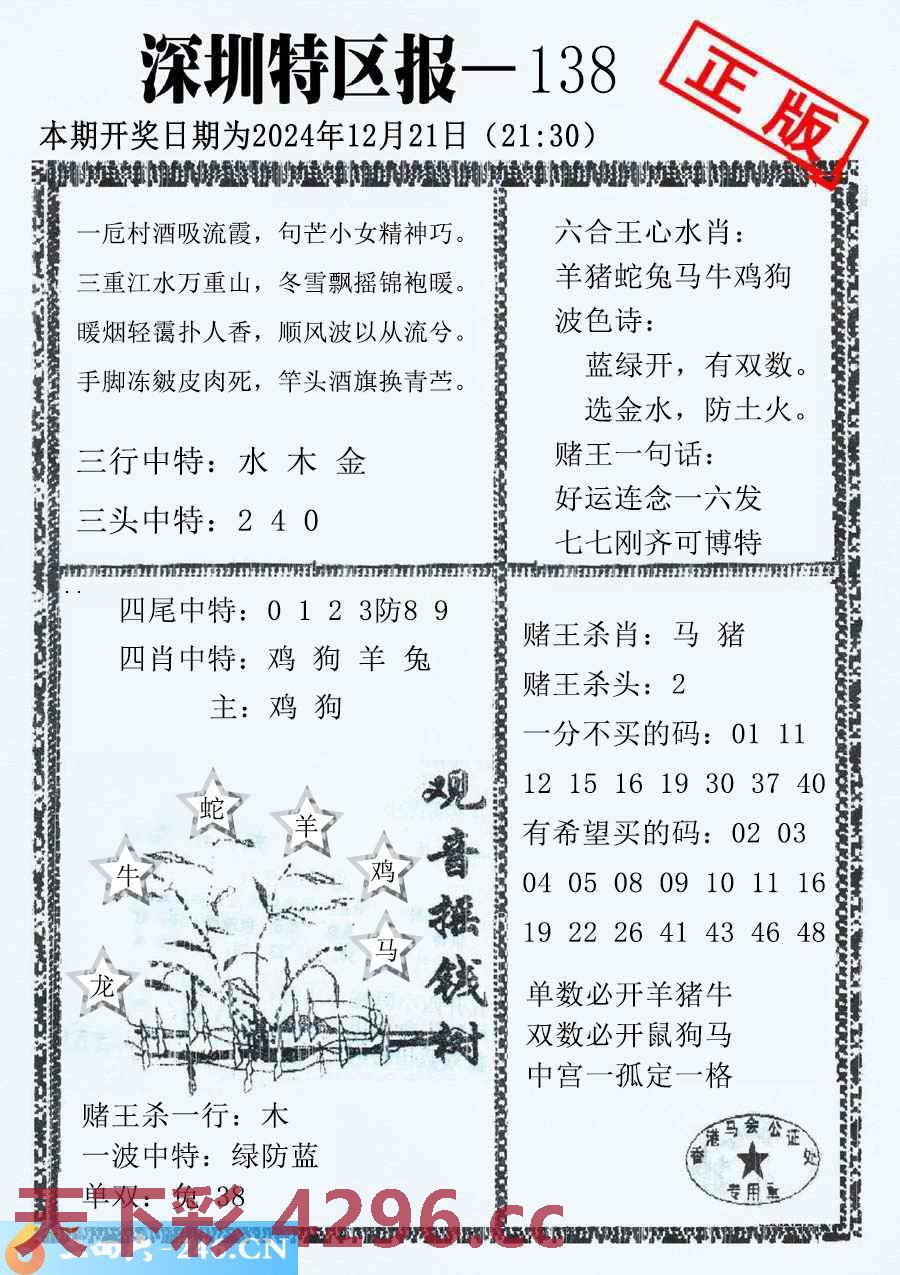 深圳特区报—138
正版
本期开奖日期为2024年12月21日（21:30）
一卮村酒吸流霞，句芒小女精神巧。
三重江水万重山，冬雪飘摇锦袍暖。
暖烟轻霭扑人香，顺风波以从流兮。
手脚冻皴皮肉死，竿头酒旗换青苎。
三行中特：水 木 金
三头中特：2 4 0
六合王心水肖：
羊猪蛇兔马牛鸡狗
波色诗：
蓝绿开，有双数。
选金水，防土火。
赌王一句话：
好运连念一六发
七七刚齐可博特
四尾中特：0 1 2 3防8 9
四肖中特：鸡 狗 羊 兔
主：鸡 狗
蛇
羊
牛
鸡
马
龙
观音摇钱树
赌王杀一行：木
一波中特：绿防蓝
单双：兔 38
赌王杀肖：马 猪
赌王杀头：2
一分不买的码：01 11
12 15 16 19 30 37 40
有希望买的码：02 03
04 05 08 09 10 11 16
19 22 26 41 43 46 48
单数必开羊猪牛
双数必开鼠狗马
中宫一孤定一格
香港马会公证处
专用章
天下彩 4296.cc